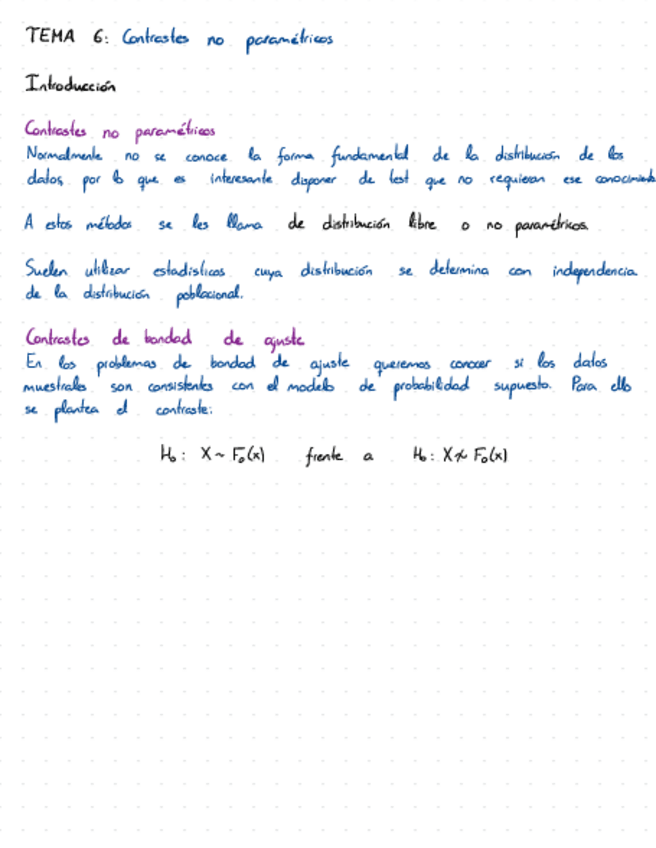 TEMA 6: Contrastes no paramétricos
Introducción
Contrastes no paramétricos
Normalmente no se conoce la forma fundamental de la distribución de los
datos, por lo que es interesante disponer de test que no requieran ese conocimiento
A estos métodos se les llama de distribución libre o no paramétricos.
Suelen utilizar estadísticos cuya distribución se determina con independencia
de la distribución poblacional.
Contrastes de bondad de ajuste
En los problemas de bondad de ajuste queremos conocer si los datos
muestrales son consistentes con el modelo de probabilidad supuesto. Para ello
se plantea el contraste:
H₀: X ~ F₀(x) frente a H₀: X ≁ F₀(x)